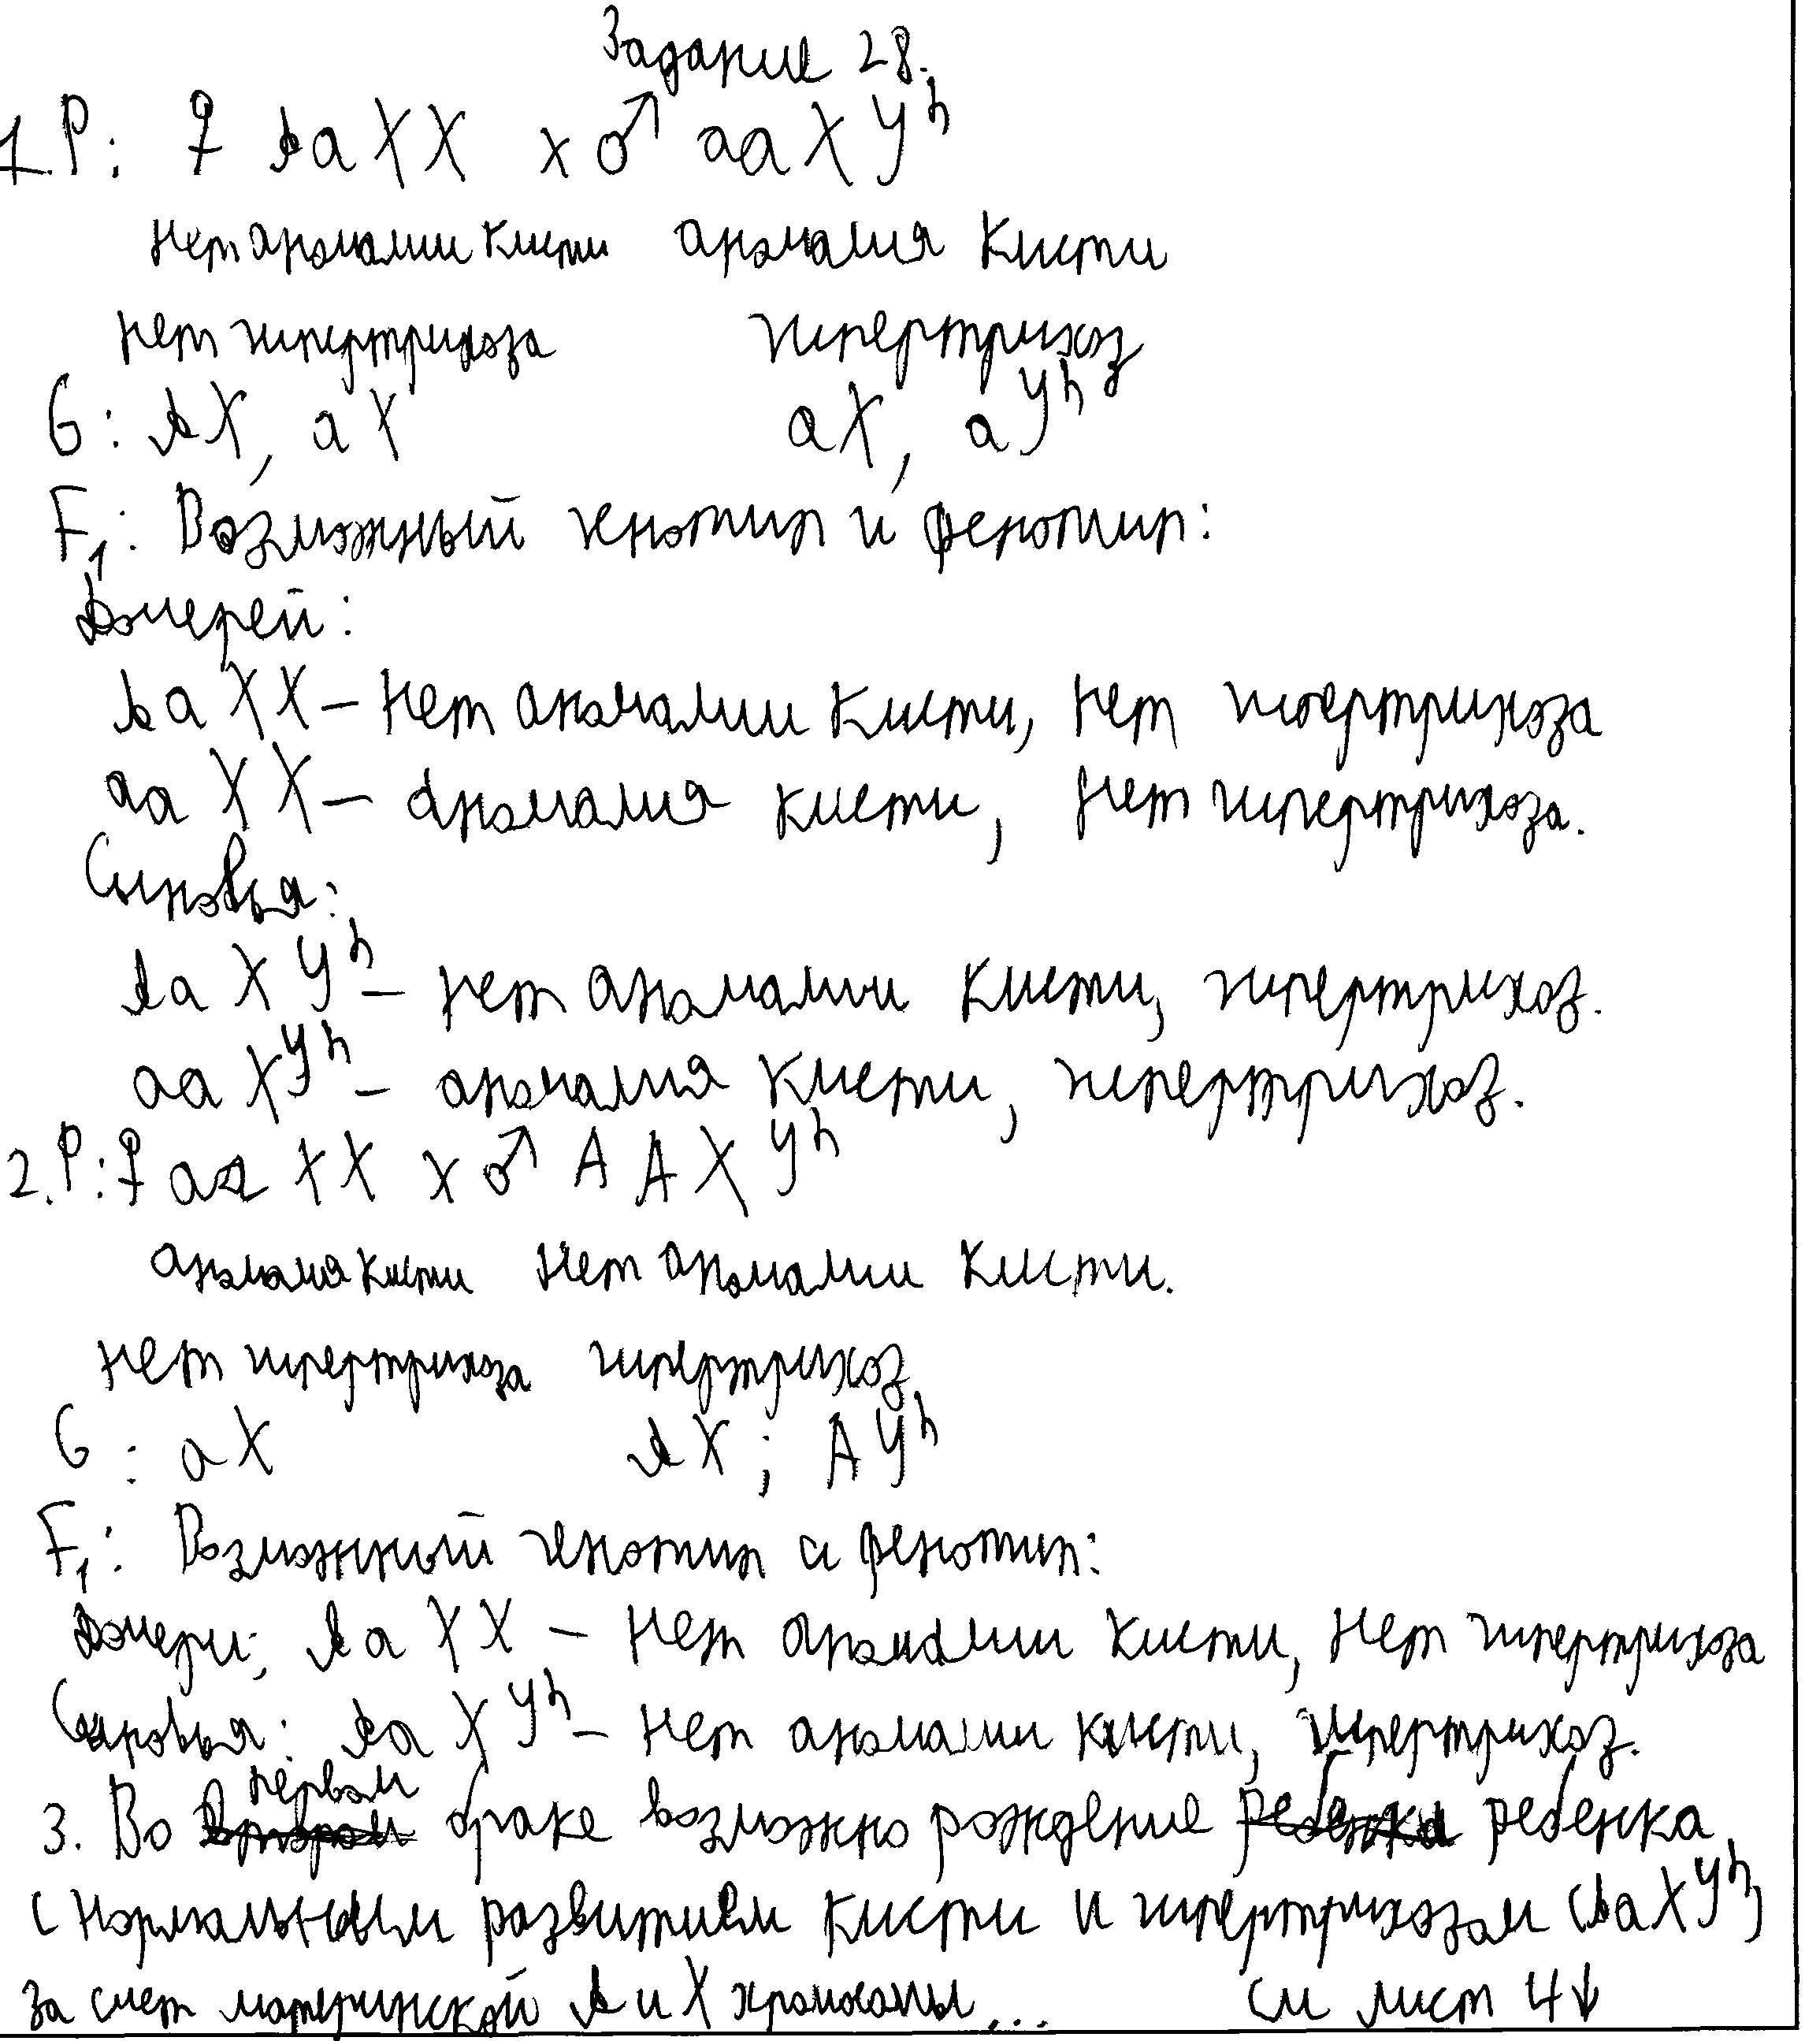 Задание 28.
1. P: ♀ AaXX x ♂ aaXYʰ
нет аномалии кисти аномалия кисти
нет гипертрихоза гипертрихоз
G: AX, aX aX, aYʰ
F₁: Возможный генотип и фенотип:
Дочерей:
AaXX – нет аномалии кисти, нет гипертрихоза
aaXX – аномалия кисти, нет гипертрихоза.
Сыновья:
AaXYʰ – нет аномалии кисти, гипертрихоз.
aaXYʰ – аномалия кисти, гипертрихоз.
2. P: ♀ aaXX x ♂ AAXYʰ
аномалия кисти нет аномалии кисти.
нет гипертрихоза гипертрихоз
G: aX AX; AYʰ
F₁: Возможный генотип и фенотип:
Дочери: AaXX – нет аномалии кисти, нет гипертрихоза
Сыновья: AaXYʰ – нет аномалии кисти, гипертрихоз.
3. Во втором первом браке возможно рождение ребенка ребенка
с нормальным развитием кисти и гипертрихозом (AaXYʰ)
за счет материнской A и X хромосомы... см лист 4↓